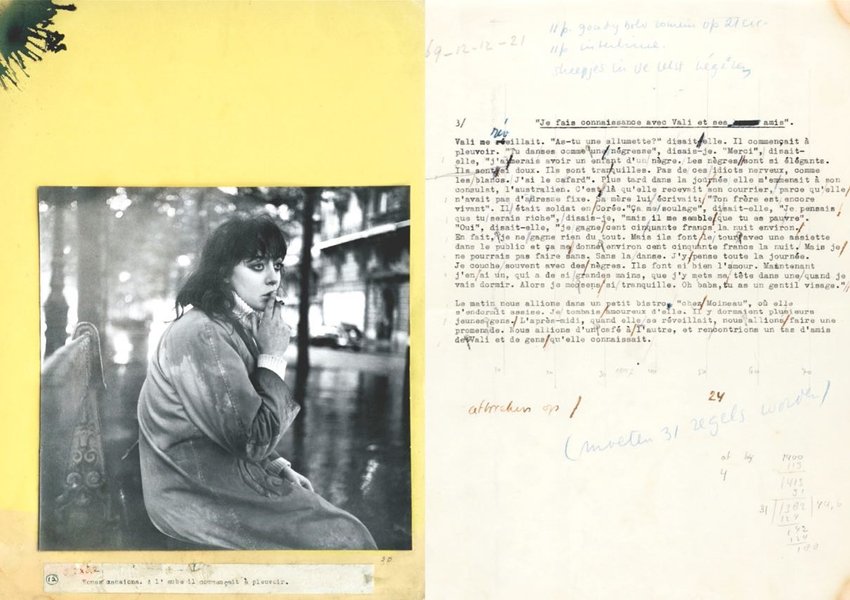 : à l' aube il commençait à pleuvoir.
30
69-12-12-21
11p. goudy bold romein op 21 cic.
11p interlinie.
streepjes in de tekst negéren
3/ "Je fais connaissance avec Vali et ses amis".
Vali me réveillait. "As-tu une allumette?" disait-elle. Il commençait à
pleuvoir. "Tu danses comme une négresse", disais-je. "Merci", disait-
elle, "j'aimerais avoir un enfant d'un nègre. Les nègres sont si élégants.
Ils sont si doux. Ils sont tranquilles. Pas de ces idiots nerveux, comme
les blancs. J'ai le cafard". Plus tard dans la journée elle m'emmenait à son
consulat, l'australien. C'est là qu'elle recevait son courrier, parce qu'elle
n'avait pas d'adresse fixe. Sa mère lui écrivait: "Ton frère est encore
vivant". Il était soldat en Corée. "Ça me soulage", disait-elle, "Je pensais
que tu serais riche", disais-je, "mais il me semble que tu es pauvre".
"Oui", disait-elle, "je gagne cent cinquante francs la nuit environ.
En fait, je ne gagne rien du tout. Mais ils font le tour avec une assiette
dans le public et ça me donne environ cent cinquante francs la nuit. Mais je
ne pourrais pas faire sans. Sans la danse. J'y pense toute la journée.
Je couche souvent avec des nègres. Ils font si bien l'amour. Maintenant
j'en ai un, qui a de si grandes mains, que j'y mets ma tête dans une quand je
vais dormir. Alors je me sens si tranquille. Oh baba, tu as un gentil visage."
Le matin nous allions dans un petit bistro, "chez Moineau", où elle
s'endormait assise. Je tombais amoureux d'elle. Il y dormaient plusieurs
jeunes gens. L'après-midi, quand elle se réveillait, nous allions faire une
promenade. Nous allions d'un café à l'autre, et rencontrions un tas d'amis
de Vali et de gens qu'elle connaissait.
afbreken op /
24
(moeten 31 regels worden)
1400
1413
31